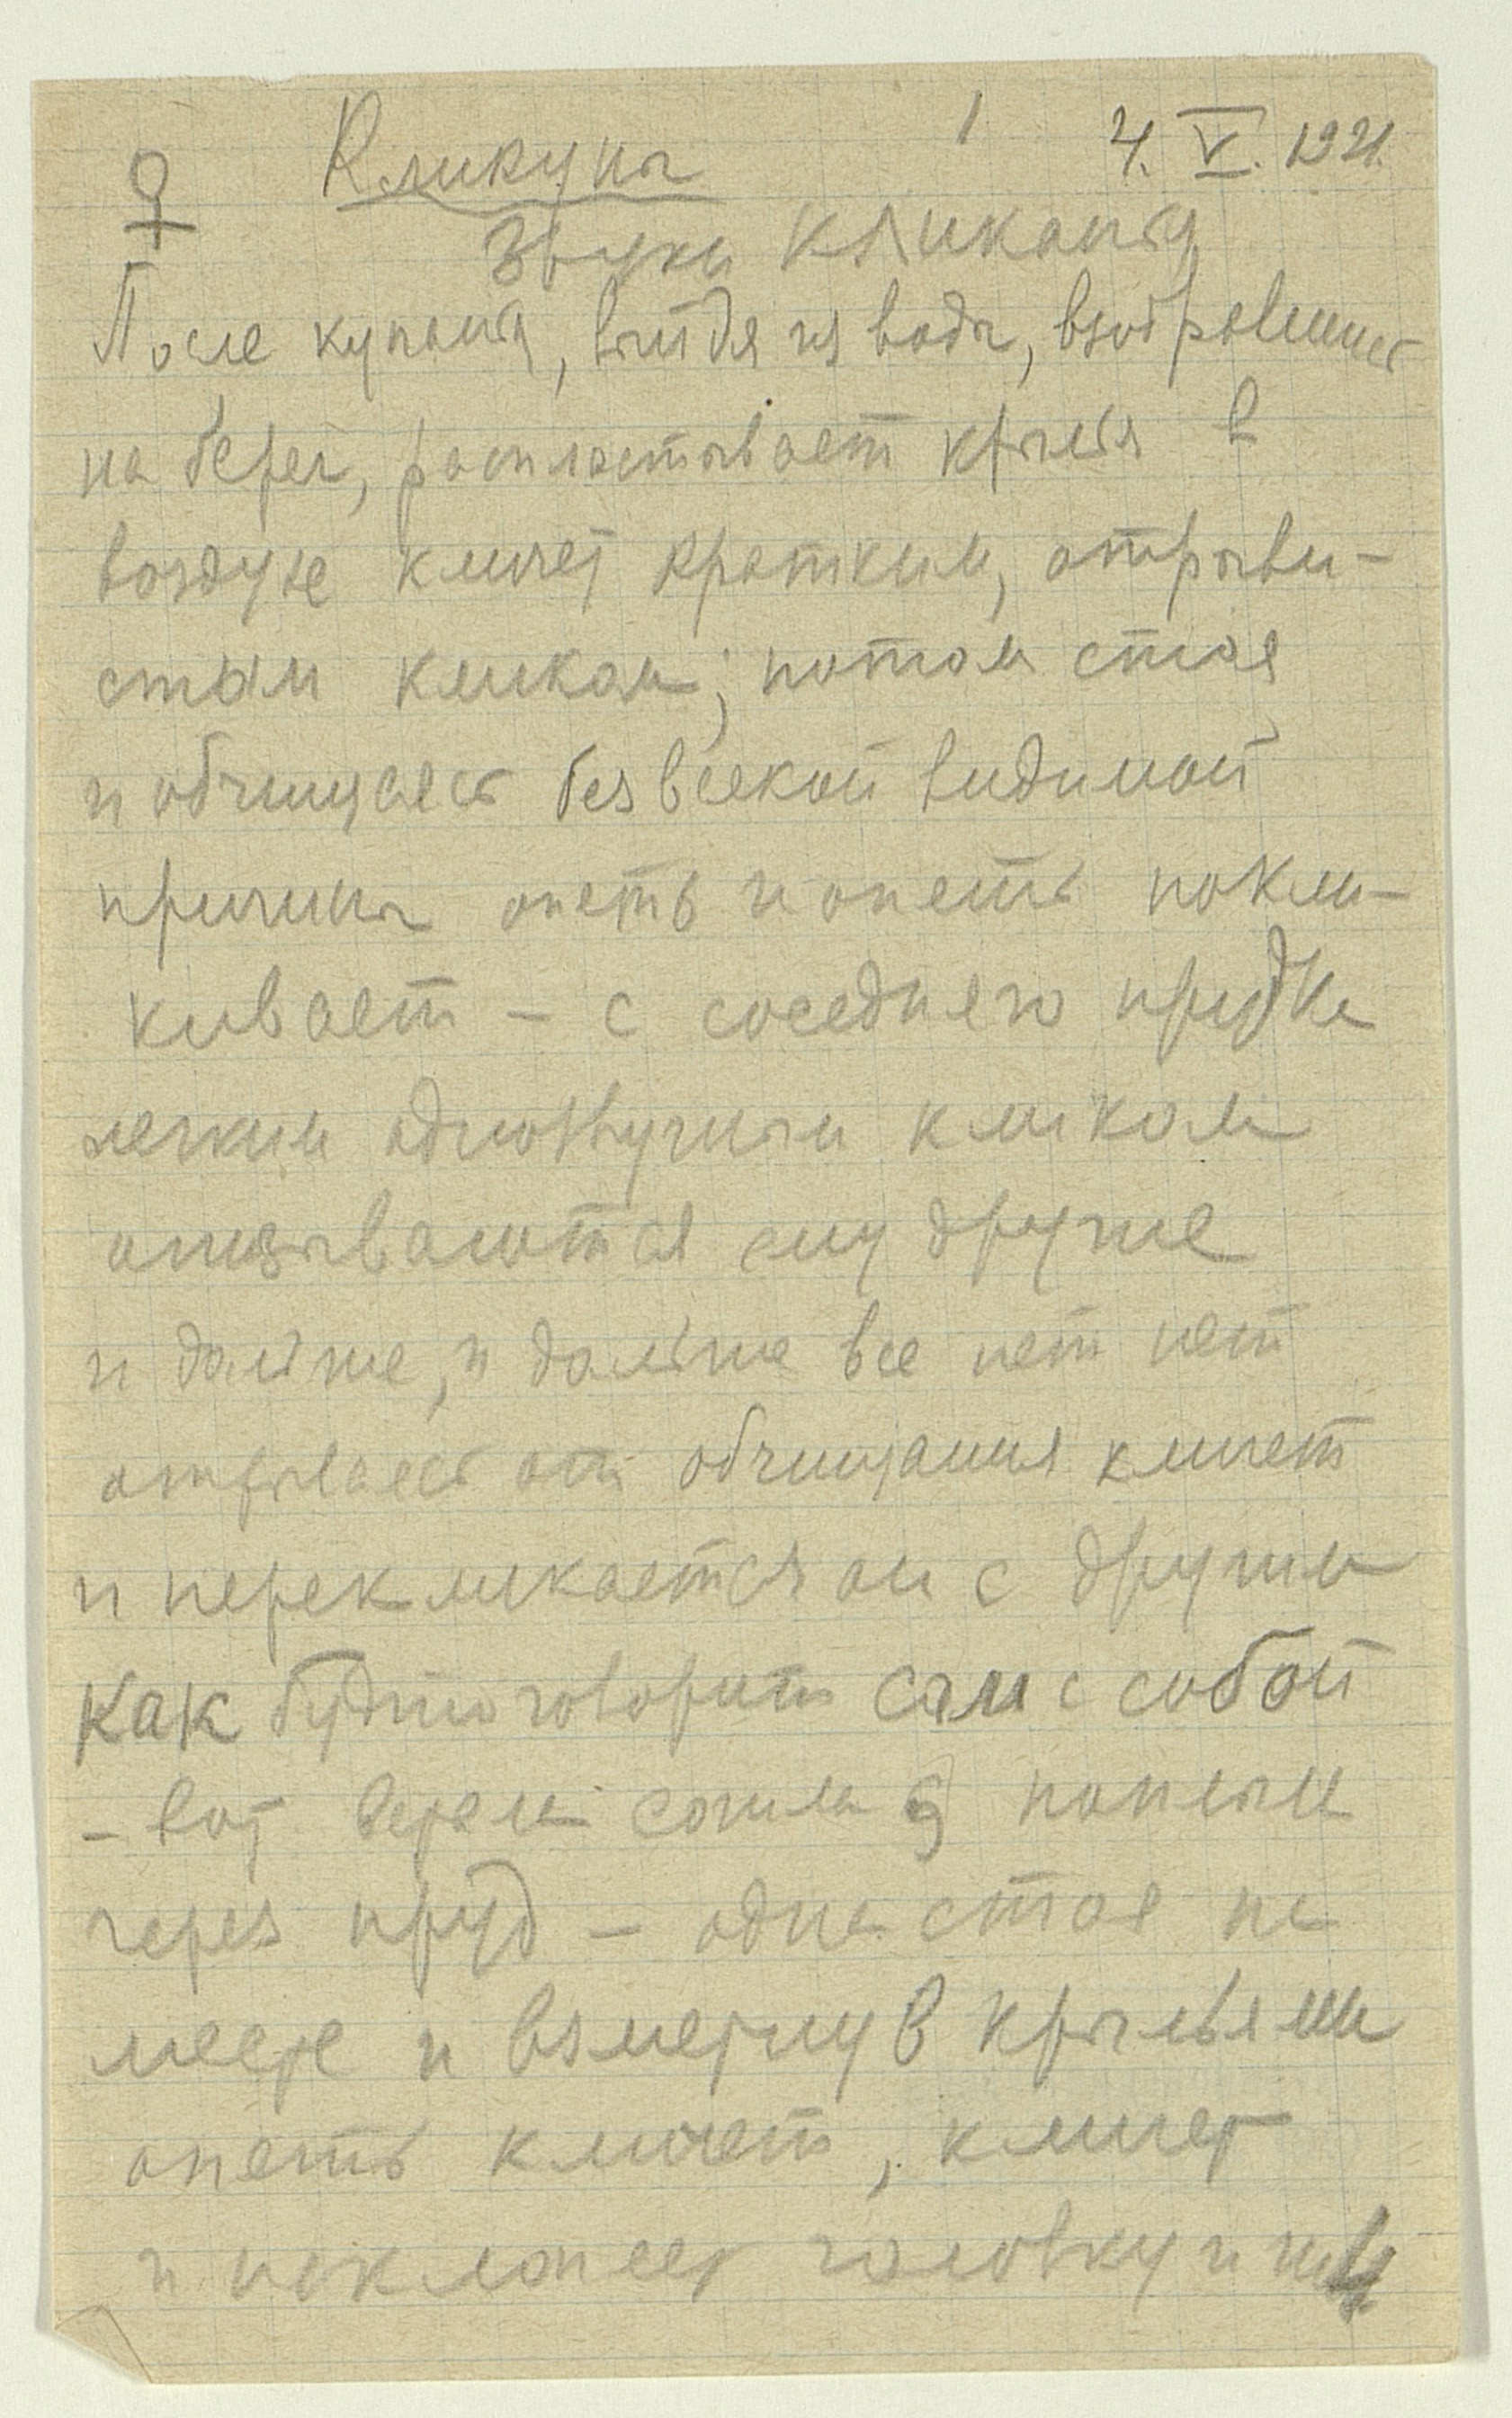 ♀ Кликуны 1 4. V. 1921.
Звуки кликанья
После купанья, выйдя из воды, взобравшись
на берег, распластывает крылья в
воздухе кличет кратким, отрыви-
стым кликом; потом стоя
и обчищаясь без всякой видимой
причины опять и опять покли-
кивает – с соседнего прудка
легким однозвучным кликом
отзываются ему другие
и дальше, и дальше все нет нет
отрываясь от обчищанья кличет
и перекликается он с другими
Как будто говорит сам с собой
– вот сошла поплыли
через пруд – одна стоя на
месте и взмахнув крыльями
опять кличет, кличет
и наклоняет головку и